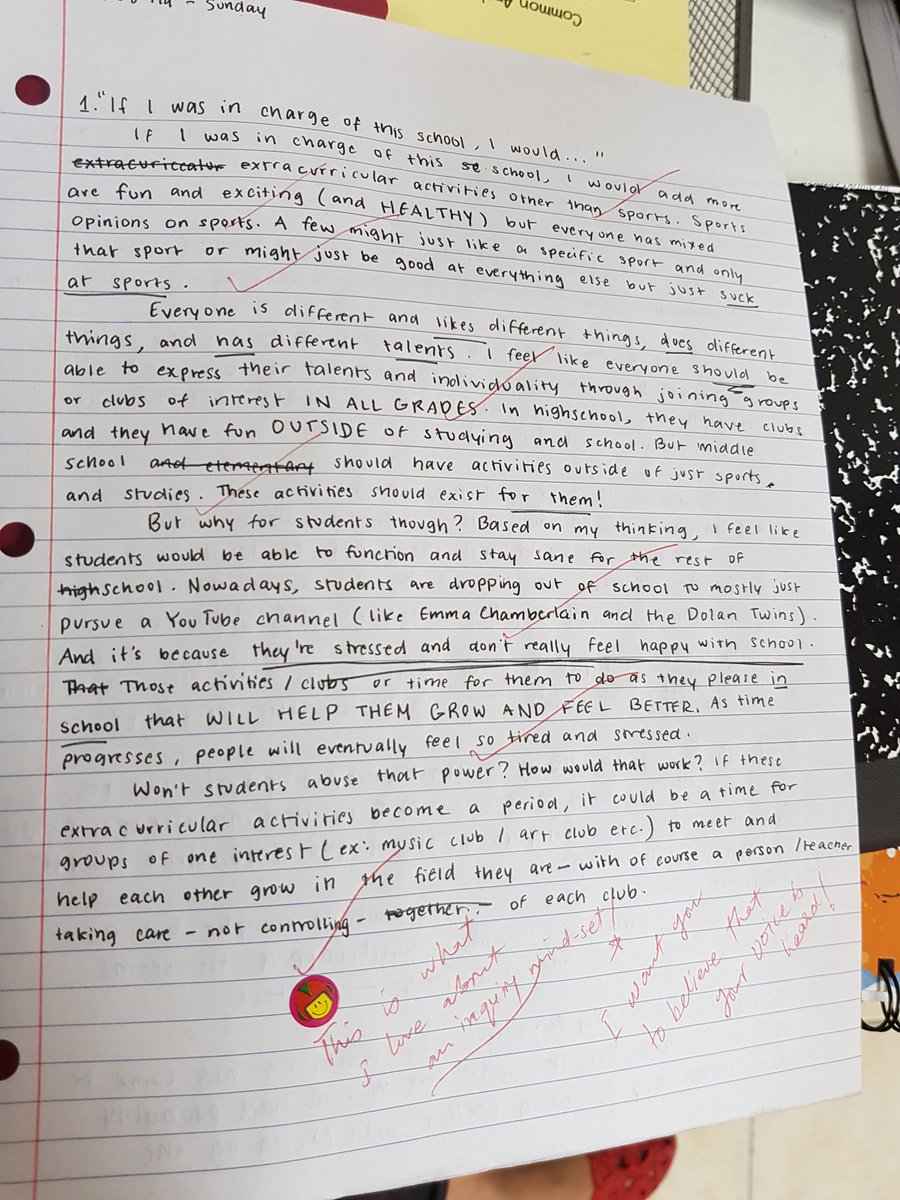 - Sunday
Common
1. "If I was in charge of this school, I would..."
If I was in charge of this se school, I would add more
extracuriccalur extracurricular activities other than sports. Sports
are fun and exciting (and HEALTHY) but everyone has mixed
opinions on sports. A few might just like a specific sport and only
that sport or might just be good at everything else but just suck
at sports.
Everyone is different and likes different things, does different
things, and has different talents. I feel like everyone should be
able to express their talents and individuality through joining groups
or clubs of interest IN ALL GRADES. In highschool, they have clubs
and they have fun OUTSIDE of studying and school. But middle
school and elementary should have activities outside of just sports
and studies. These activities should exist for them!
But why for students though? Based on my thinking, I feel like
students would be able to function and stay sane for the rest of
highschool. Nowadays, students are dropping out of school to mostly just
pursue a YouTube channel (like Emma Chamberlain and the Dolan Twins).
And it's because they're stressed and don't really feel happy with school.
That Those activities / clubs or time for them to do as they please in
school that WILL HELP THEM GROW AND FEEL BETTER. As time
progresses, people will eventually feel so tired and stressed.
Won't students abuse that power? How would that work? If these
extracurricular activities become a period, it could be a time for
groups of one interest (ex: music club / art club etc.) to meet and
help each other grow in the field they are - with of course a person / teacher
taking care - not controlling - together. of each club.
This is what
I love about
an inquiry mind-set!
I want you
to believe that
your voice is
heard!